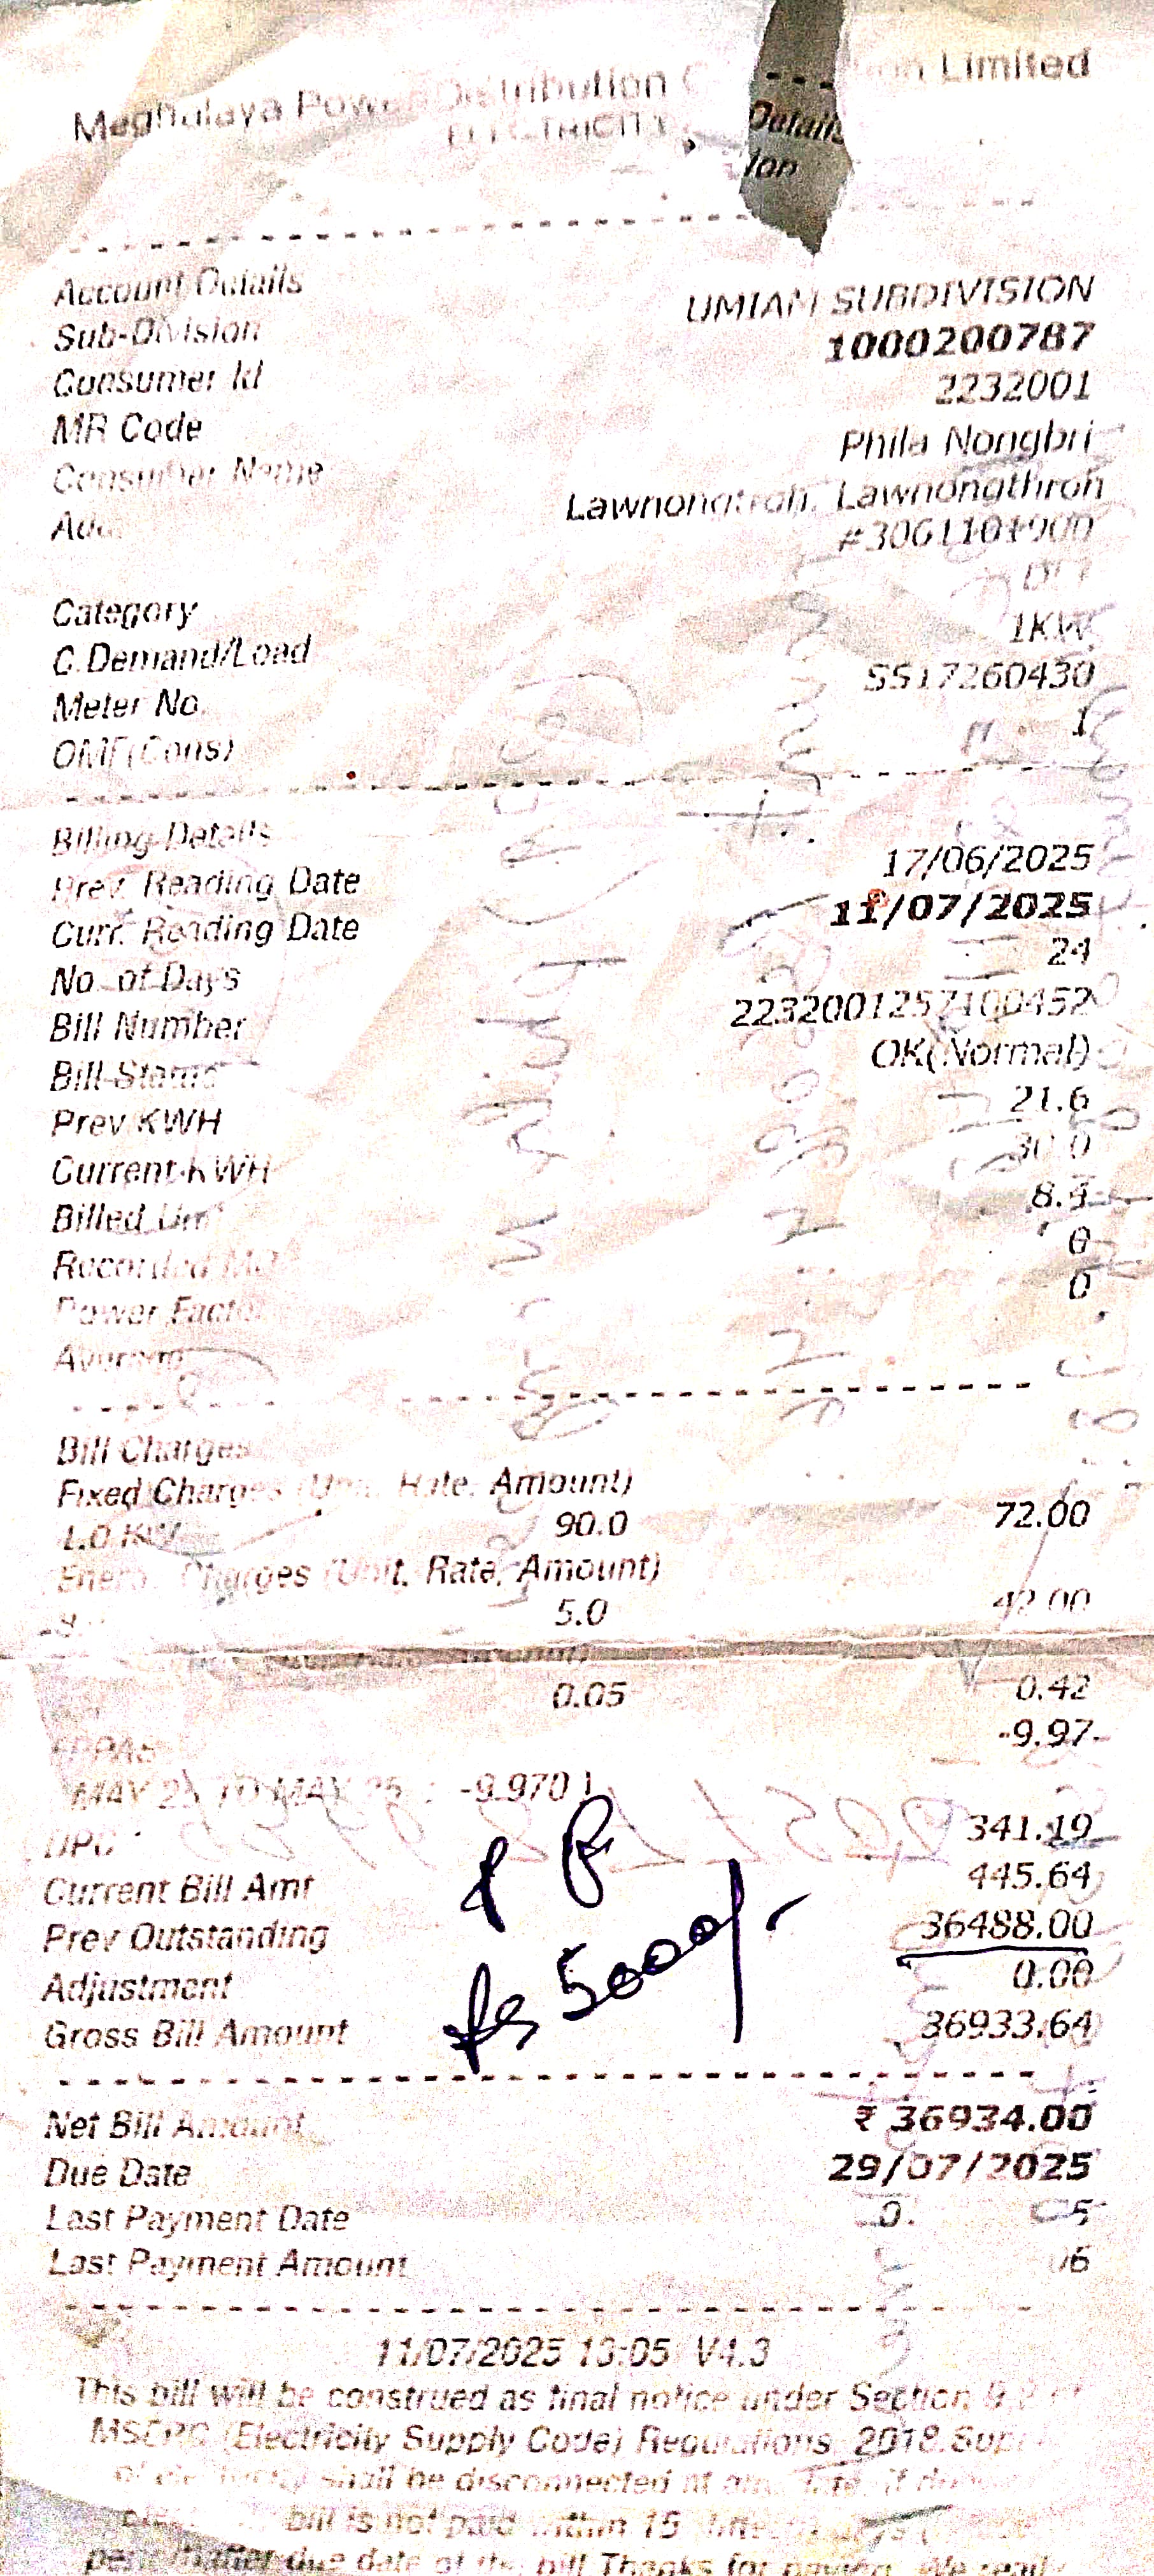 Meghalaya Power Distribution Limited
ELECTRICITY Details
Account Details
Sub-Division UMIAM SUBDIVISION
Consumer Id 1000200787
MR Code 2232001
Consumer Name Phila Nongbri
Lawnongthroh
#3061101900
Category
C.Demand/Load 1KW
Meter No. SS17260430
OMF(Cons) 1
Billing Details
Prev. Reading Date 17/06/2025
Curr. Reading Date 11/07/2025
No. of Days 24
Bill Number 2232001257100452
Bill Status OK(Normal)
Prev KWH 21.6
Current KWH 30.0
Billed Unit 8.4
Recorded MD 0
Power Factor 0
Average
Bill Charges
Fixed Charges (Unit, Rate, Amount)
1.0 KW 90.0 72.00
Energy Charges (Unit, Rate, Amount)
5.0 42.00
0.05 0.42
FPPAS -9.97
MAY 25 TO MAY 25 : -9.970 )
DPC 341.19
Current Bill Amt 445.64
Prev Outstanding 36488.00
Adjustment 0.00
Gross Bill Amount 36933.64
Rs 5000/-
Net Bill Amount ₹ 36934.00
Due Date 29/07/2025
Last Payment Date
Last Payment Amount
11/07/2025 13:05 V4.3
This bill will be construed as final notice under Section
MSERC (Electricity Supply Code) Regulations, 2018.
shall be disconnected at
bill is not paid within 15
due date of the bill Thanks for paying.